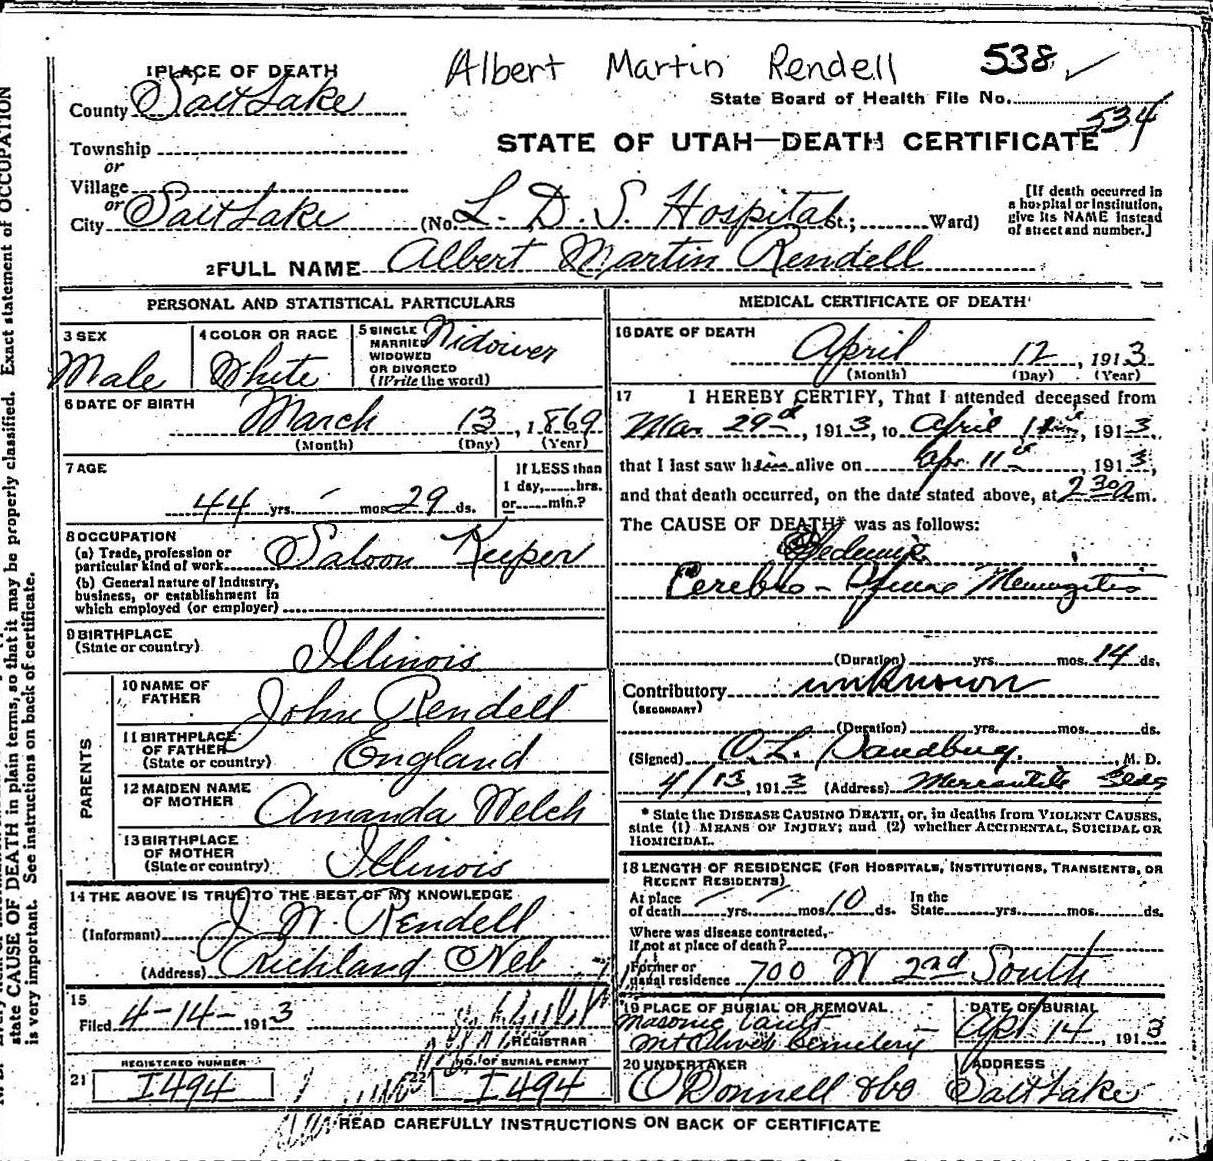 Albert Martin Rendell 538 ✓
1 PLACE OF DEATH
County Salt Lake
State Board of Health File No. 534
Township
or
Village
STATE OF UTAH—DEATH CERTIFICATE
or
City Salt Lake (No. L. D. S. Hospital St.; Ward)
[If death occurred in
a hospital or institution,
give its NAME instead
of street and number.]
2 FULL NAME Albert Martin Rendell
PERSONAL AND STATISTICAL PARTICULARS
3 SEX
Male
4 COLOR OR RACE
White
5 SINGLE
MARRIED
WIDOWED
OR DIVORCED
(Write the word)
Widower
6 DATE OF BIRTH
March 13, 1869
(Month) (Day) (Year)
7 AGE
44 yrs. - mos. 29 ds.
If LESS than
1 day, hrs.
or min.?
8 OCCUPATION
(a) Trade, profession or
particular kind of work Saloon Keeper
(b) General nature of Industry,
business, or establishment in
which employed (or employer)
9 BIRTHPLACE
(State or country)
Illinois
PARENTS
10 NAME OF
FATHER
John Rendell
11 BIRTHPLACE
OF FATHER
(State or country)
England
12 MAIDEN NAME
OF MOTHER
Amanda Welch
13 BIRTHPLACE
OF MOTHER
(State or country)
Illinois
14 THE ABOVE IS TRUE TO THE BEST OF MY KNOWLEDGE
(Informant) J W Rendell
(Address) Richland Neb
15
Filed 4-14- 1913
REGISTRAR
REGISTERED NUMBER
21 I494
NO. OF BURIAL PERMIT
22 I494
MEDICAL CERTIFICATE OF DEATH
16 DATE OF DEATH
April 12, 1913
(Month) (Day) (Year)
17 I HEREBY CERTIFY, That I attended deceased from
Mar 29, 1913, to April, 1913,
that I last saw him alive on Apr 11, 1913,
and that death occurred, on the date stated above, at m.
The CAUSE OF DEATH* was as follows:
Cerebro - Meningitis
(Duration) yrs. mos. 14 ds.
Contributory unknown
(SECONDARY)
(Duration) yrs. mos. ds.
(Signed) O. L. , M. D.
4/13, 1913 (Address) Mercantile Bldg
* State the DISEASE CAUSING DEATH, or, in deaths from VIOLENT CAUSES,
state (1) MEANS OF INJURY; and (2) whether ACCIDENTAL, SUICIDAL OR
HOMICIDAL.
18 LENGTH OF RESIDENCE (FOR HOSPITALS, INSTITUTIONS, TRANSIENTS, OR
RECENT RESIDENTS)
At place
of death yrs. mos. 10 ds.
In the
State yrs. mos. ds.
Where was disease contracted,
If not at place of death?
Former or
usual residence 700 W 2nd South
19 PLACE OF BURIAL OR REMOVAL
Masonic Vault
Mt Olivet Cemetery
DATE OF BURIAL
Apr 14, 1913
20 UNDERTAKER
O'Donnell & Co
ADDRESS
Salt Lake
READ CAREFULLY INSTRUCTIONS ON BACK OF CERTIFICATE
state CAUSE OF DEATH in plain terms, so that it may be properly classified. Exact statement of OCCUPATION
is very important. See instructions on back of certificate.